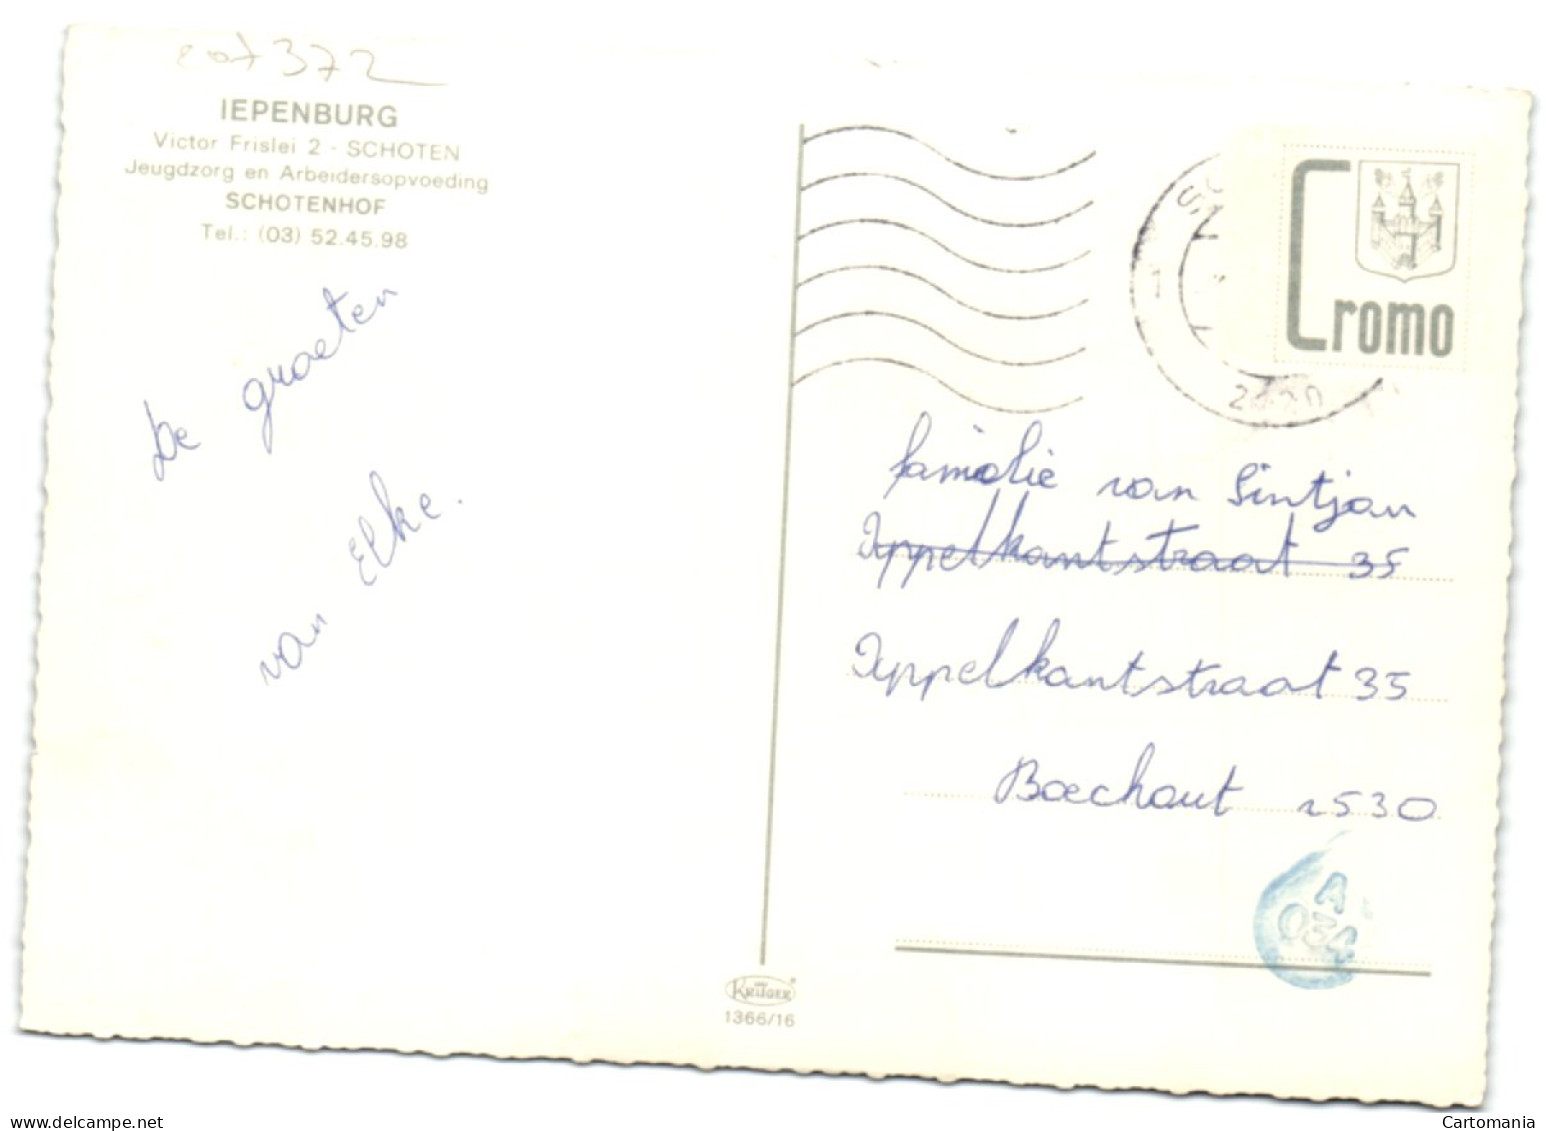 372
IEPENBURG
Victor Frislei 2 - SCHOTEN
Jeugdzorg en Arbeidersopvoeding
SCHOTENHOF
Tel.: (03) 52.45.98
De groeten
van Elke.
Cromo
familie van Sintjan
Appelkantstraat 35
Appelkantstraat 35
Boechout 2530
A
034
KRÜGER
1366/16
delcampe.net
Cartomania